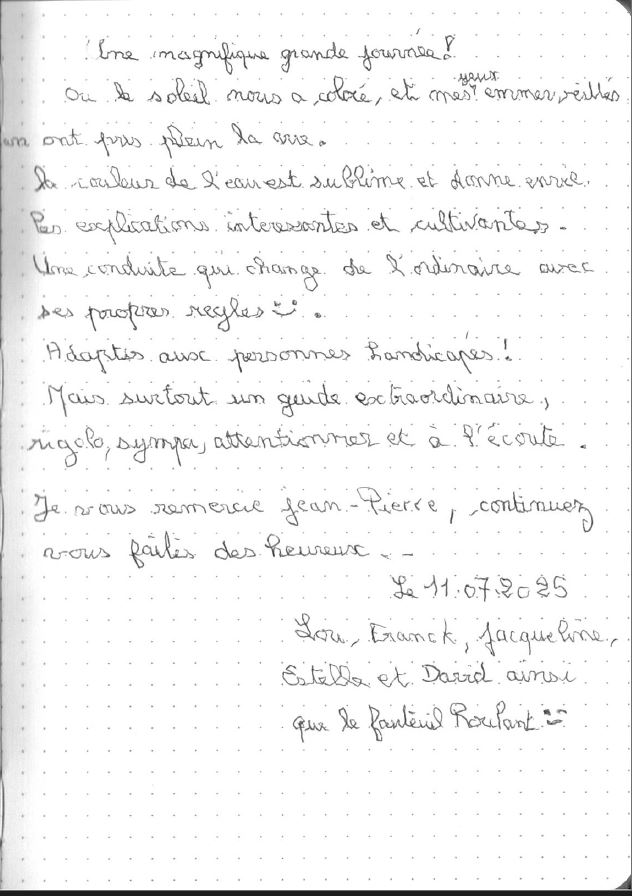 Une magnifique grande journée !
Ou le soleil nous a coloré, et mes yeux emmerveillés
en ont pris plein la vue.
la couleur de l'eau est sublime et donne envie.
Les explications interessantes et cultivantes.
Une conduite qui change de l'ordinaire avec
ses propres regles :) .
Adaptés aux personnes handicapés !
Mais surtout un guide extraordinaire,
rigolo, sympa, attentionnez et à l'écoute.
Je vous remercie Jean-Pierre, continuez
vous faîtes des heureux...
Le 11.07.2025
Lou, Franck, Jacqueline,
Estelle et David ainsi
que le fauteuil Roulant :)